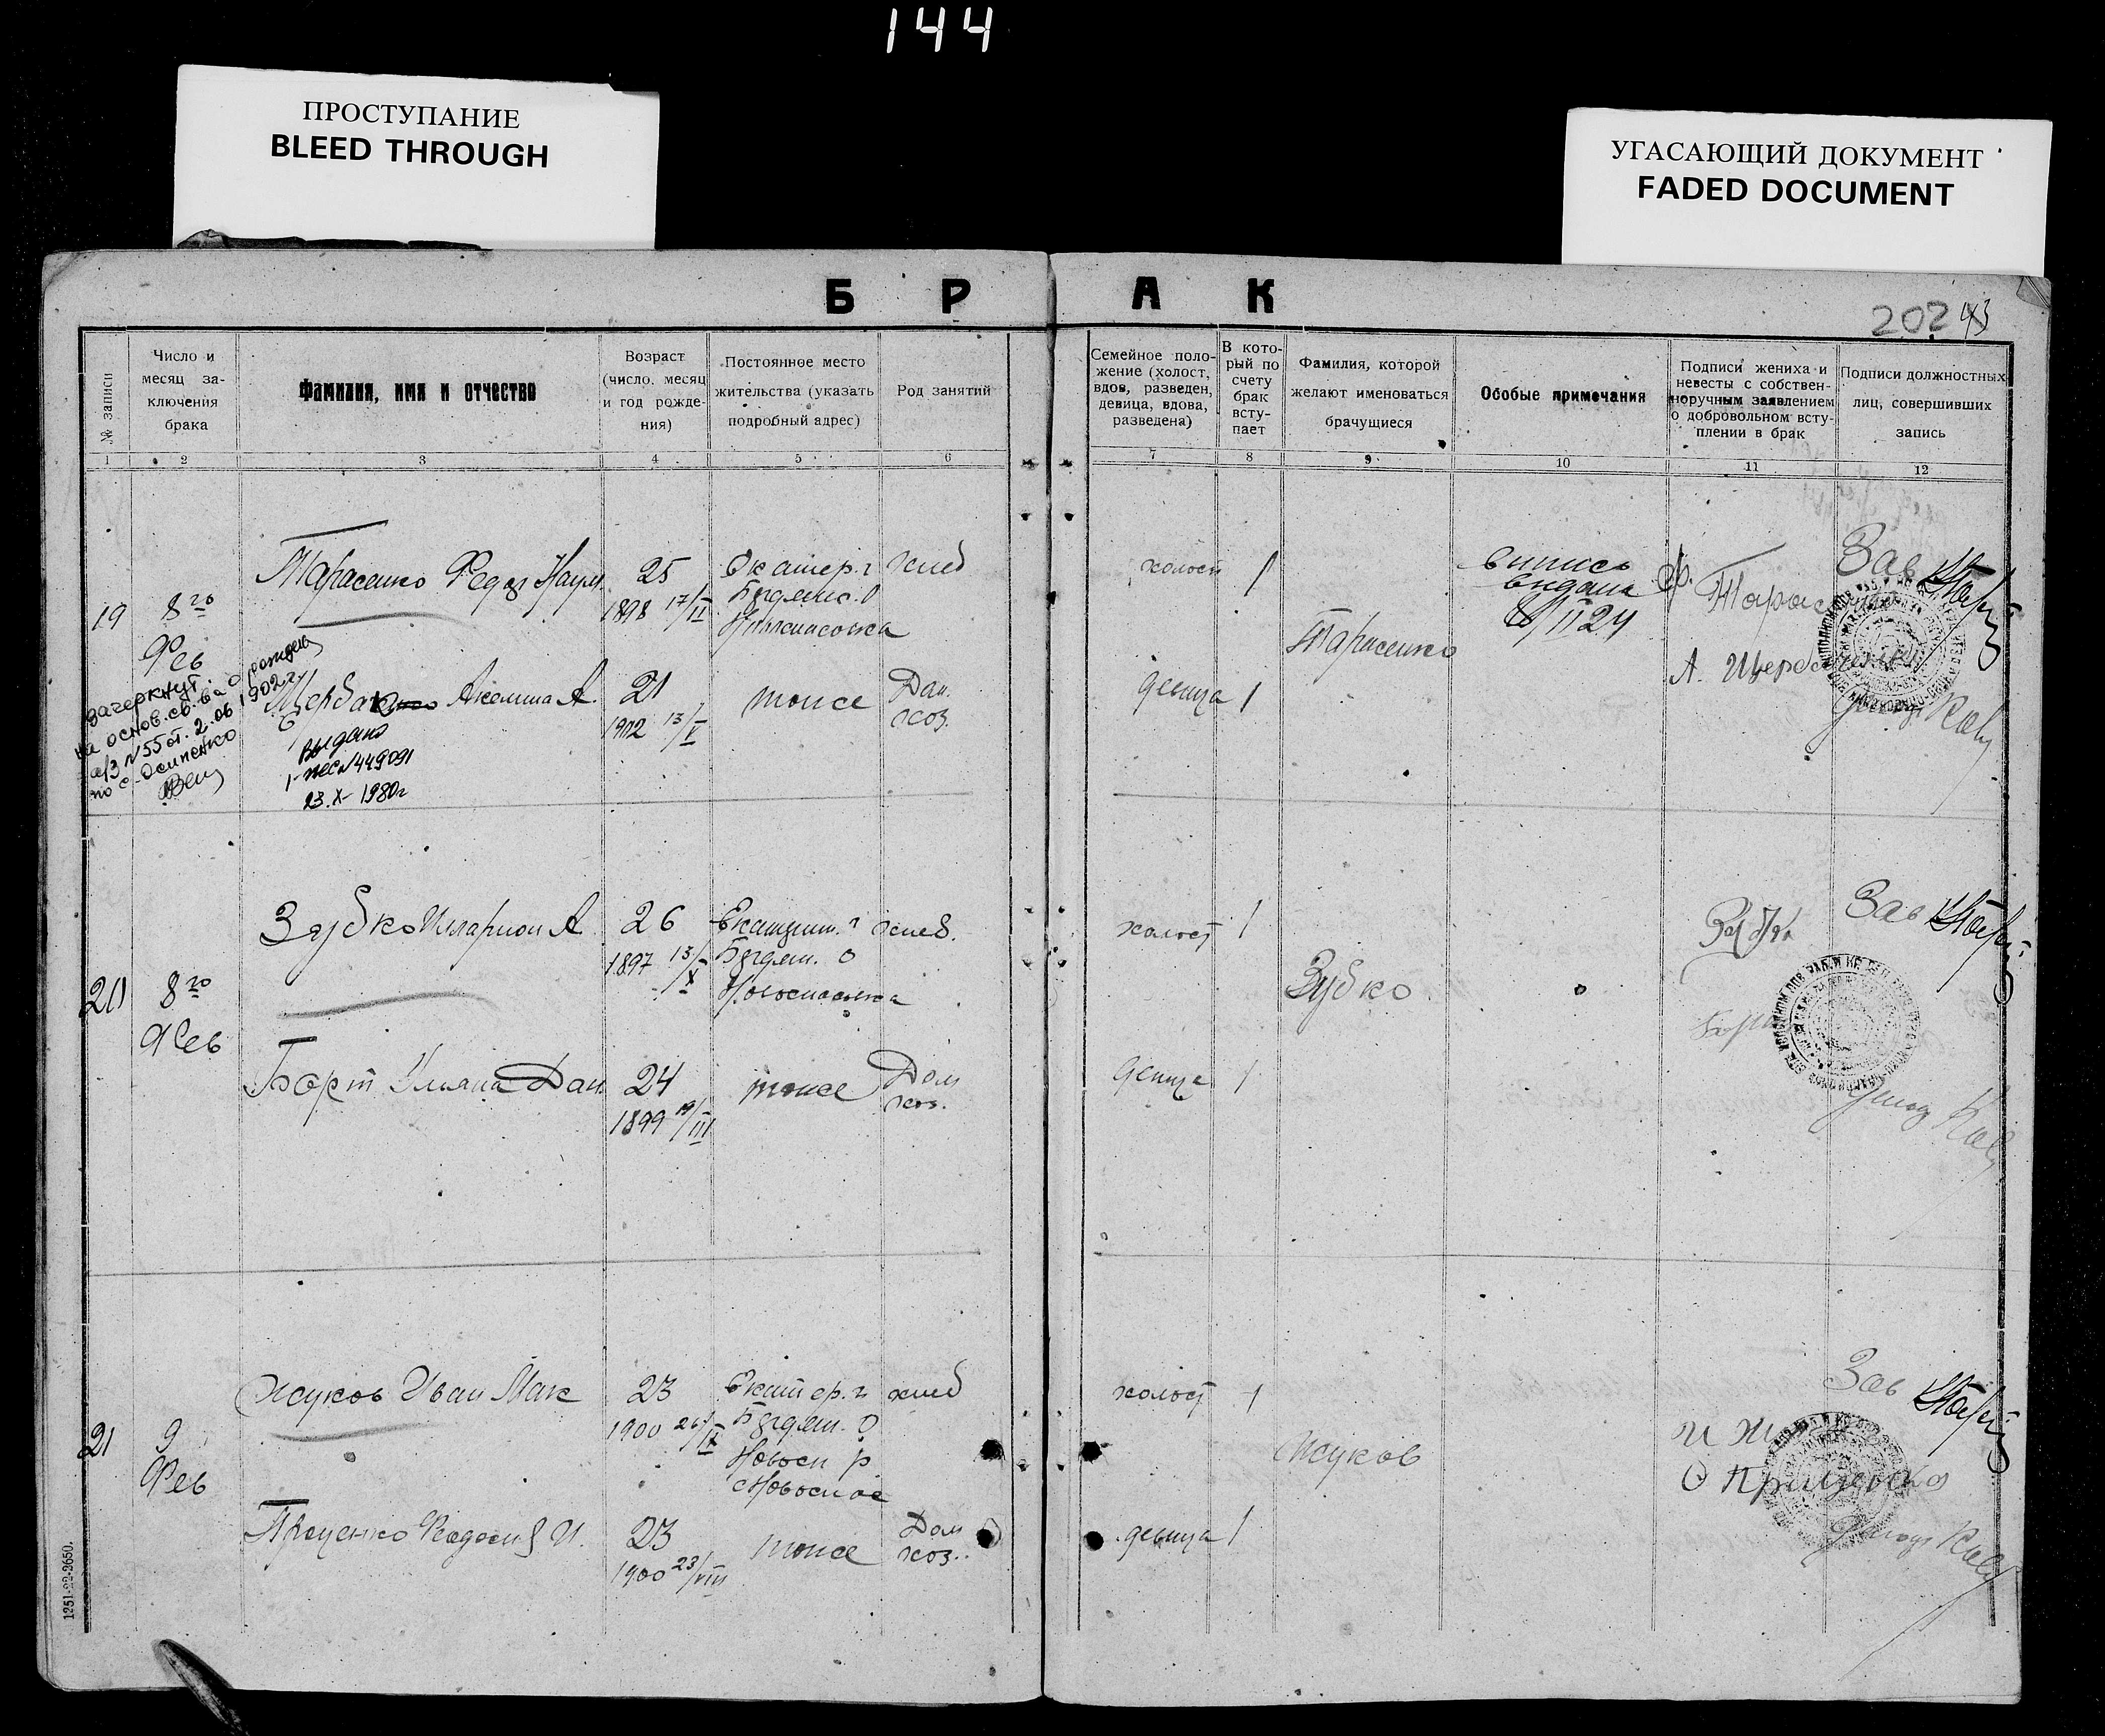 144
ПРОСТУПАНИЕ
BLEED THROUGH
УГАСАЮЩИЙ ДОКУМЕНТ
FADED DOCUMENT
БРАК
202 43
№ записи
Число и месяц заключения брака
Фамилия, имя и отчество
Возраст (число, месяц и год рождения)
Постоянное место жительства (указать подробный адрес)
Род занятий
Семейное положение (холост, вдов, разведен, девица, вдова, разведена)
В который по счету брак вступает
Фамилия, которой желают именоваться брачущиеся
Особые примечания
Подписи жениха и невесты с собственноручным заявлением о добровольном вступлении в брак
Подписи должностных лиц, совершивших запись
1 2 3 4 5 6 7 8 9 10 11 12
19
8го
Фев
Тарасенко Федор Наум
25
1898 17/II
Екатер. г
Бердянс. О
хлеб
холост
1
Тарасенко
випись
видана
8/II 24
Зав
зачеркнут.
на основ. св.-ва о рожден
а/з №55 от. 2.06 1902г
по с-Осипенко
Щербак Акелина А
21
1902 13/V
тоже
Дом.
хоз.
девица
1
А. Щерб
Выдано
№449091
23.X-1980г
20
8го
Фев
Зубко Илларион А
26
1897 13/X
Бердян. О
Новоспасовка
хлеб.
холост
1
Зубко
Зав
Борт Уляна Дан
24
1899 19/III
тоже
Дом
хоз.
девица
1
21
9
Фев
Жуков Иван Мак
23
1900 26/IX
Екатер. г
Бердян. О
Новосп р
с Новоспас
хлеб
холост
1
Жуков
И Ж
Зав
Проценко Феодосия И.
23
1900 23/VIII
тоже
Дом
хоз.
девица
1
1251-22-3650.